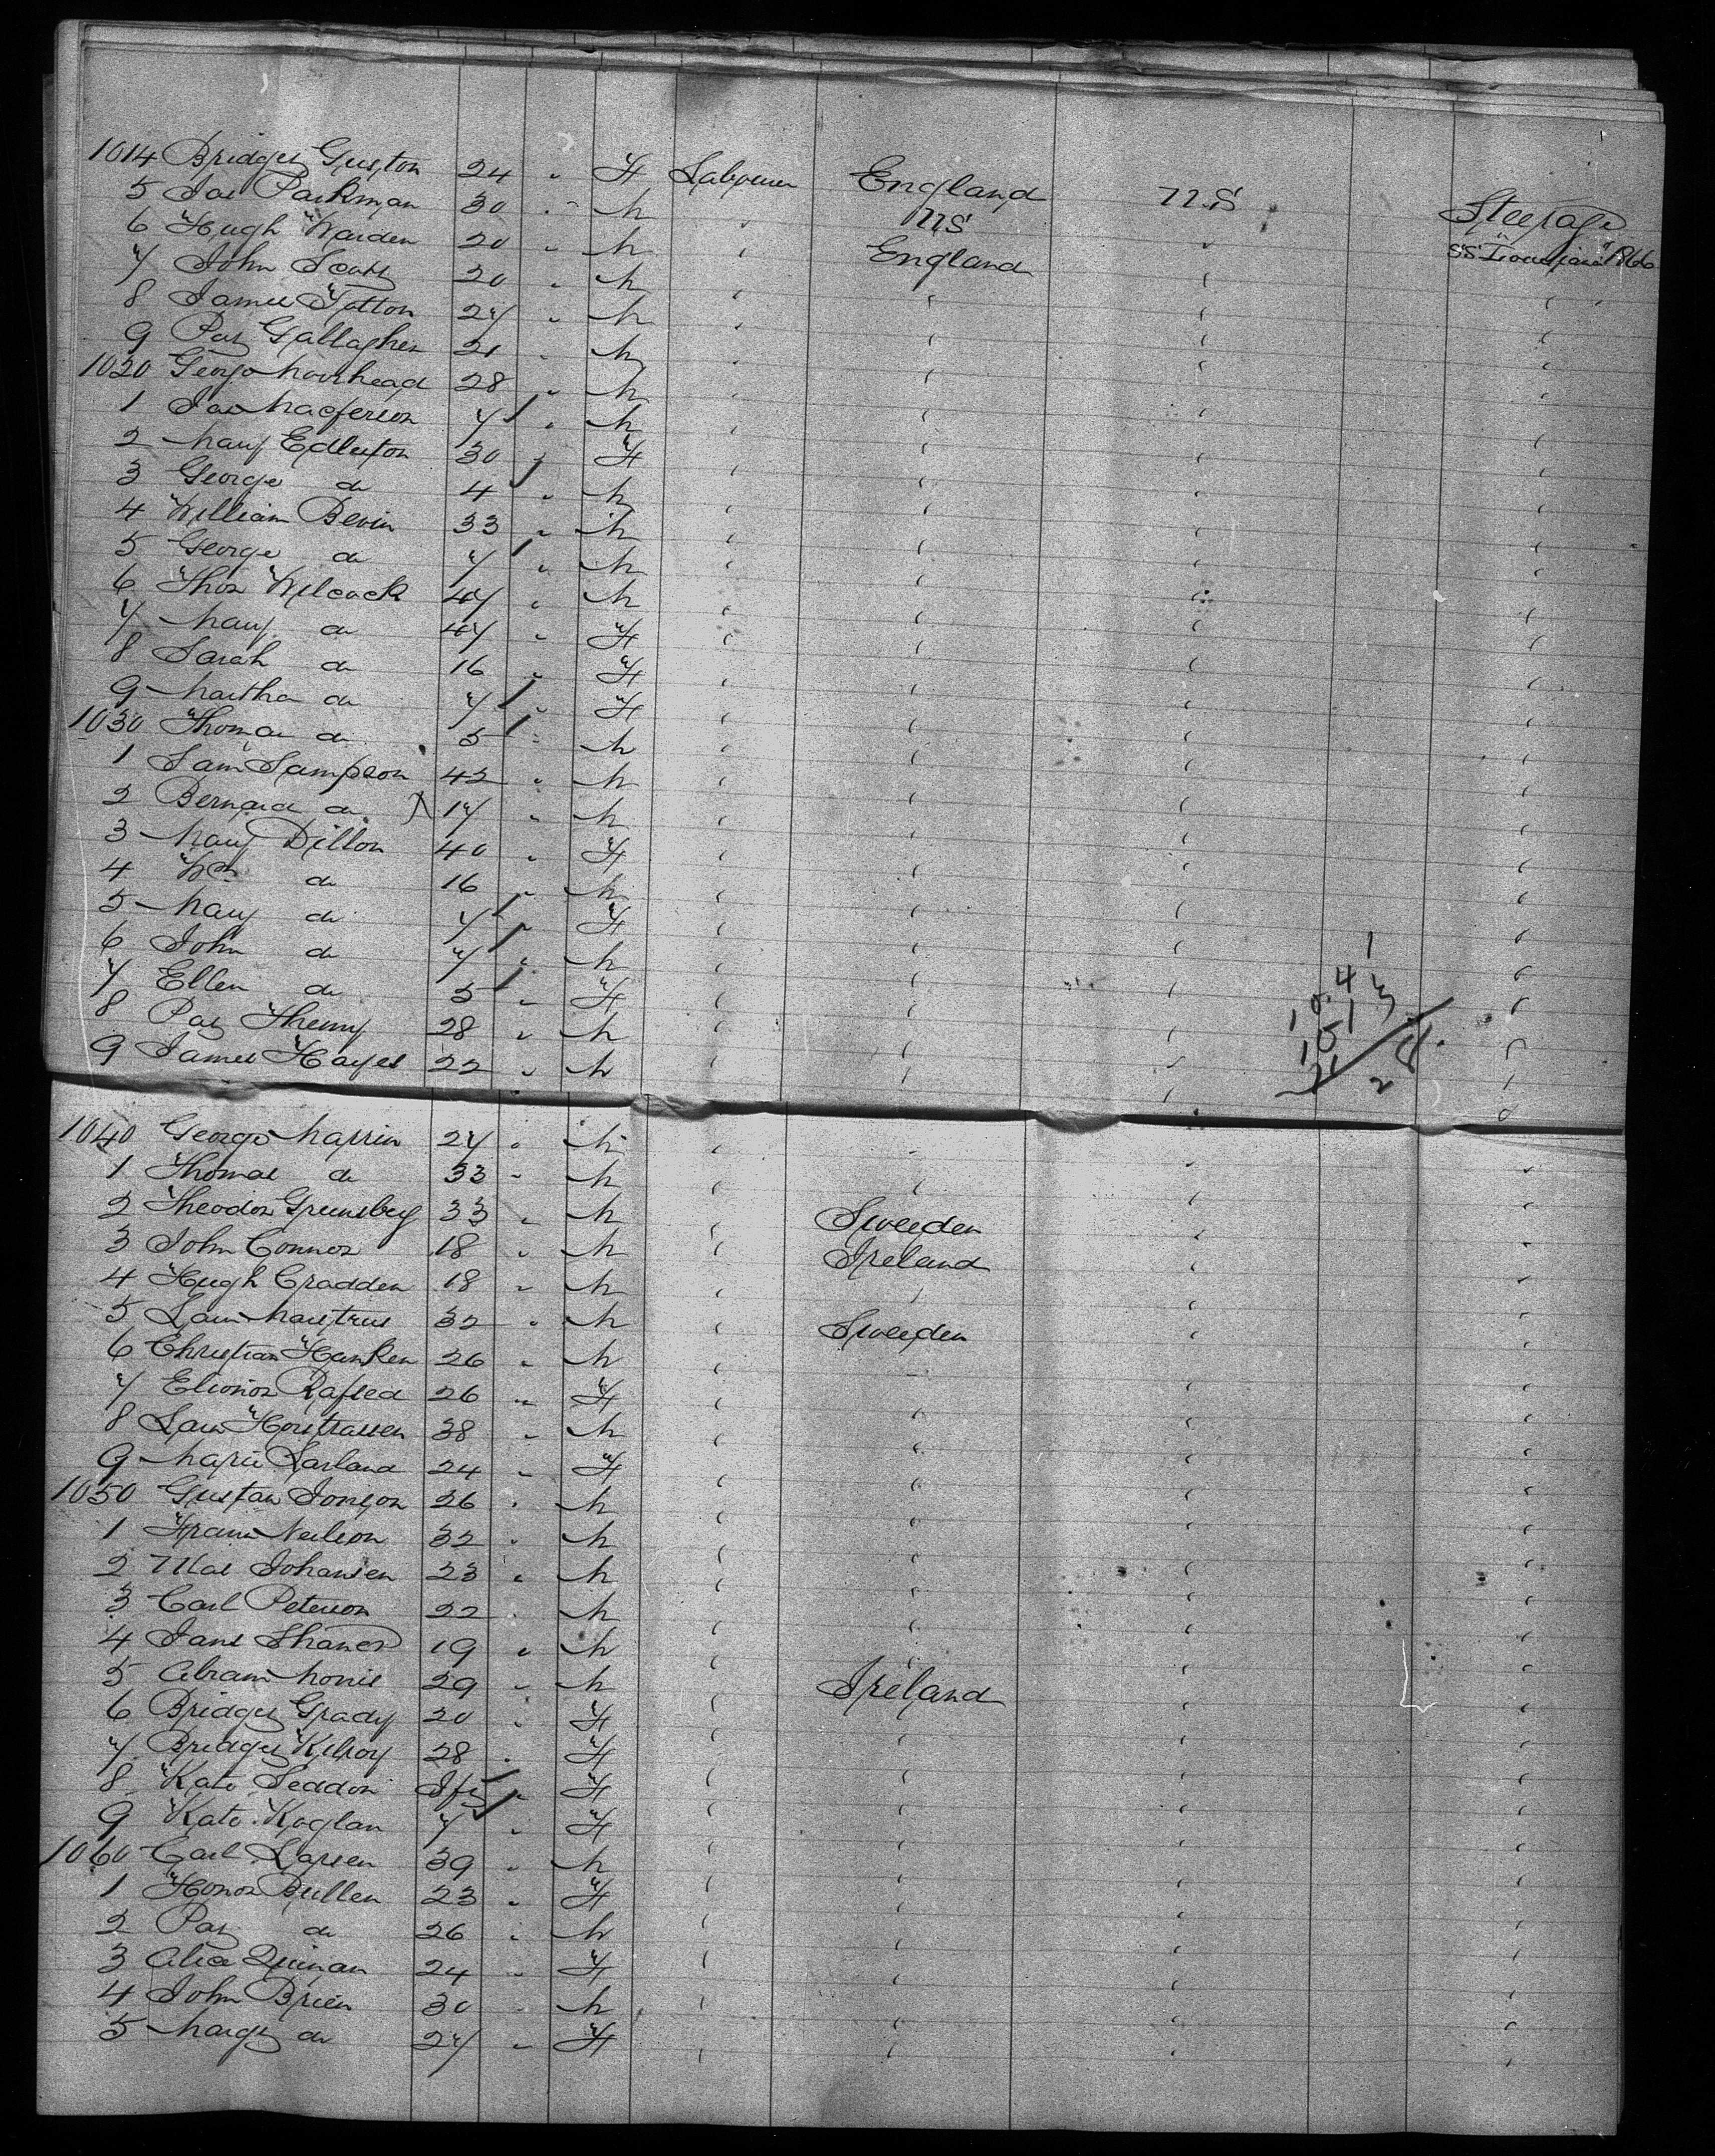 1014 Bridget Guston 24 " F Labourer England U.S Steerage
5 Jas Parkman 30 " M " US
6 Hugh Warden 20 " M " England " SS "Louisiana" 1866
7 John Scott 20 " M " " " "
8 James Totton 27 " M " " " "
9 Pat Gallagher 21 " M " " " "
1020 George Moorhead 28 " M " " " "
1 Jas Macferson 7 " M " " " "
2 Mary Edleston 30 " F " " " "
3 George do 4 " M " " " "
4 William Bevin 33 " M " " " "
5 George do 7 " M " " " "
6 Thos Wilcock 47 " M " " " "
7 Mary do 47 " F " " " "
8 Sarah do 16 " F " " " "
9 Martha do 7 " F " " " "
1030 Thomas do 5 " M " " " "
1 Sam Sampson 42 " M " " " "
2 Bernard do X 17 " M " " " "
3 Mary Dillon 40 " F " " " "
4 Wm do 16 " M " " " "
5 Mary do 7 " F " " " "
6 John do 7 " M " " " "
7 Ellen do 5 " F " " " "
8 Pat 28 " M " " " "
9 James Hayes 22 " M " " " "
1040 George Marrin 27 " M " " " "
1 Thomas do 33 " M " " " "
2 Theodor Greensberg 33 " M " Sweeden " "
3 John Connor 18 " M " Ireland " "
4 Hugh Cradden 18 " M " " " "
5 32 " M " Sweeden " "
6 Christian Hanken 26 " M " " " "
7 Elionor 26 " F " " " "
8 Lars 38 " M " " " "
9 Marie Larland 24 " F " " " "
1050 Gustav Jonson 26 " M " " " "
1 Frans Neilson 32 " M " " " "
2 Johansen 23 " M " " " "
3 Carl Peterson 22 " M " " " "
4 Jans 19 " M " " " "
5 Abram Morris 29 " M " Ireland " "
6 Bridget Grady 20 " F " " " "
7 Bridget Kilroy 28 " F " " " "
8 Kate Seddon Inf " F " " " "
9 Kate Koglan 7 " F " " " "
1060 Carl Larsen 39 " M " " " "
1 Honor Bullen 23 " F " " " "
2 Pat do 26 " M " " " "
3 Alice Quinan 24 " F " " " "
4 John Brien 30 " M " " " "
5 Margt do 27 " F " " " "